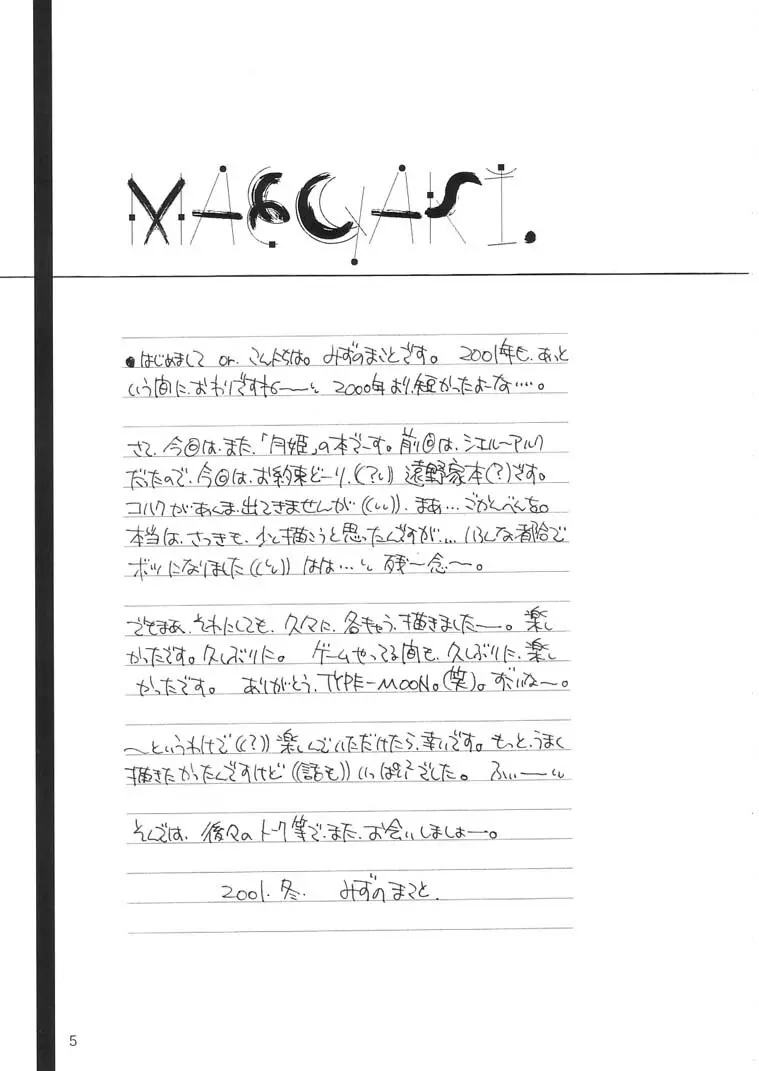 MAEGAKI.
●はじめまして or. こんにちは。みずのまことです。2001年も、あっと
いう間に、おわりですね〜〜い 2000年より、短かったよーな….。
さて、今回は、また、「月姫」の本でーす。前回は、シエルーアルク
だったので、今回は、お約束どーり、(?い) 遠野家本(?)です。
コハクが、あんま、出てきませんが((いい))、まぁ…ごかんべんを。
本当は、さっきも、少し描こうと思ったんですが、… いろんな都合で
ボツになりました((い)) はは…い 残〜念〜。
でもまぁ、それにしても、久々に、各きゃら、描きましたー。楽し
かったです。久しぶりに。ゲームやってる間も、久しぶりに、楽し
かったです。ありがとう、TYPE-MOON。(笑)。ずいな〜。
〜というわけで((?)) 楽しんでいただけたら、幸いです。もっと、うまく
描きたかったんですけど((話も)) いっぱいでした。ふぃーーい
そんでは、後々のトーク等で、また、お会いしましょー。
2001. 冬. みずのまこと.
5